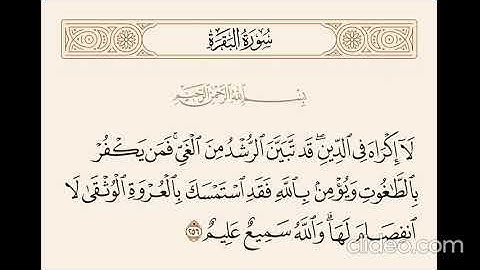 سُورَةُ البَقَرَةِ
بِسْمِ اللَّهِ الرَّحْمَٰنِ الرَّحِيمِ
لَآ إِكْرَاهَ فِى ٱلدِّينِ ۖ قَد تَّبَيَّنَ ٱلرُّشْدُ مِنَ ٱلْغَىِّ ۚ فَمَن يَكْفُرْ
بِٱلطَّٰغُوتِ وَيُؤْمِنۢ بِٱللَّهِ فَقَدِ ٱسْتَمْسَكَ بِٱلْعُرْوَةِ ٱلْوُثْقَىٰ لَا
ٱنفِصَامَ لَهَا ۗ وَٱللَّهُ سَمِيعٌ عَلِيمٌ ٢٥٦
clideo.com